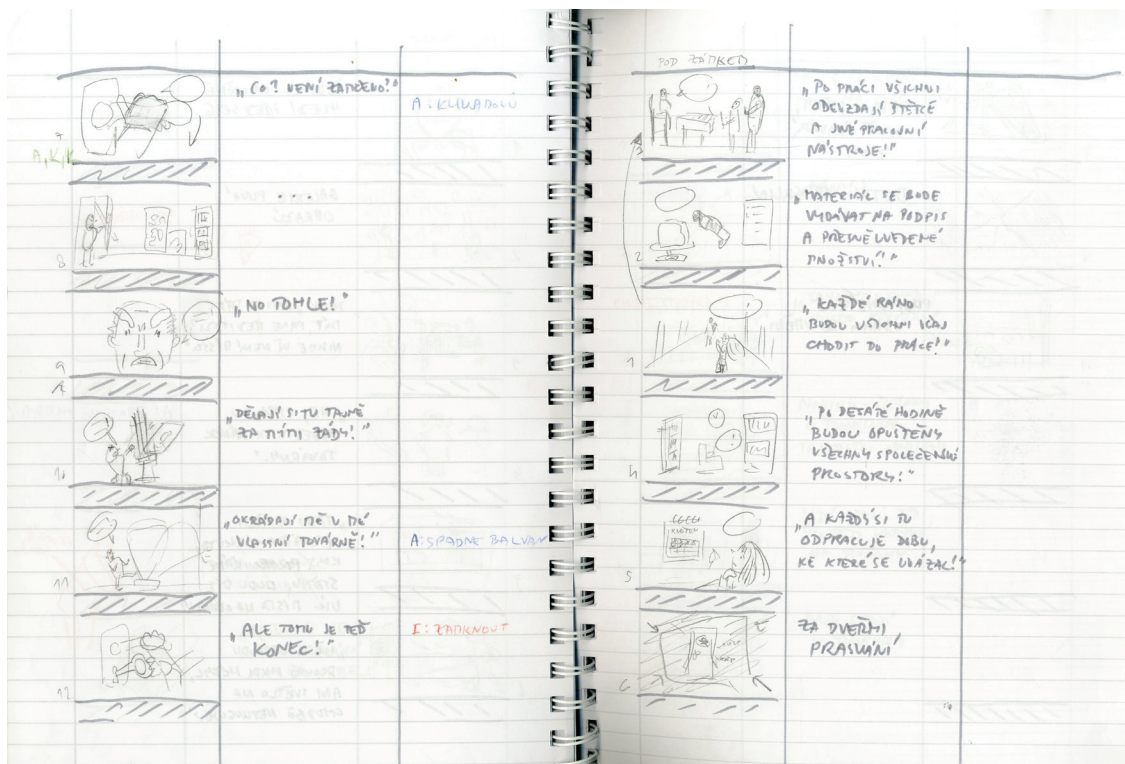 „CO? NENÍ ZAMČENO?"
A: KLIKA DOLŮ
7
A, K, K
8
„NO TOHLE!"
9
„DĚLAJÍ SI TU TAJNĚ
ZA MÝMI ZÁDY!"
10
„OKRÁDAJÍ MĚ V MÉ
VLASTNÍ TOVÁRNĚ!"
A: SPADNE BALVAN
11
„ALE TOMU JE TEĎ
KONEC!"
I: ZAMKNOUT
12
POD ZÁMKEM
„PO PRÁCI VŠICHNI
ODEVZDAJÍ ŠTĚTCE
A JINÉ PRACOVNÍ
NÁSTROJE!"
3
„MATERIÁL SE BUDE
VYDÁVAT NA PODPIS
A PŘESNĚ UVEDENÉ
MNOŽSTVÍ!"
2
„KAŽDÉ RÁNO
BUDOU VŠICHNI VČAS
CHODIT DO PRÁCE!"
1
„PO DESÁTÉ HODINĚ
BUDOU OPUŠTĚNY
VŠECHNY SPOLEČENSKÉ
PROSTORY!"
4
„A KAŽDÝ SI TU
ODPRACUJE DOBU,
KE KTERÉ SE UVÁZAL!"
5
ZA DVEŘMI
PRASKÁNÍ
6